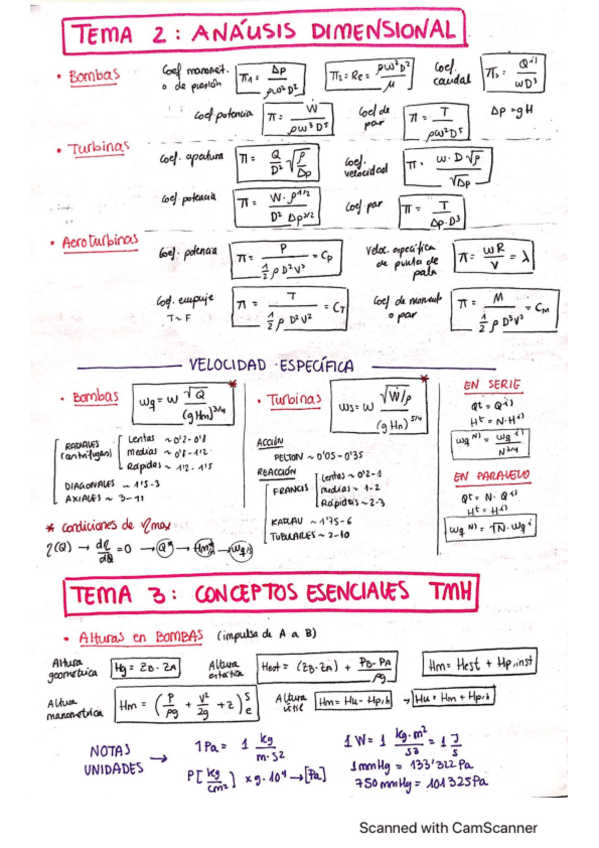 TEMA 2: ANÁLISIS DIMENSIONAL
• Bombas Coef manomet. o de presión Π1 = Δp / ρω²D² Π2 = Re = ρωD² / μ Coef. caudal Π3 = Q / ωD³
Coef potencia Π = Ẇ / ρω³D⁵ Coef de par Π = T / ρω²D⁵ Δp = gH
• Turbinas Coef. apertura Π = Q/D² √(ρ/Δp) Coef. velocidad Π = ω·D√ρ / √Δp
Coef. potencia Π = W·ρ^1/2 / D² Δp^3/2 Coef par Π = T / Δp·D³
• Aeroturbinas Coef. potencia Π = P / ½ρD²V³ = Cp Veloc. específica de punta de pala Π = ωR / V = λ
Coef. empuje T~F Π = T / ½ρD²V² = CT Coef de momento o par Π = M / ½ρD³V² = CM
VELOCIDAD ESPECÍFICA
• Bombas ωq = ω √Q / (gHm)^3/4 *
RADIALES (centrífugas)
Lentas ~ 0'2-0'8
medias ~ 0'8-1'2
Rápidas ~ 1'2-1'5
DIAGONALES ~ 1'5-3
AXIALES ~ 3-11
* Condiciones de ηmax
η(Q) → dη/dQ = 0 → Q* → Hm* → ωq
• Turbinas ωs = ω √(Ẇ/ρ) / (gHn)^5/4 *
ACCIÓN
PELTON ~ 0'05-0'35
REACCIÓN
FRANCIS
Lentas ~ 0'2-1
medias ~ 1-2
Rápidas ~ 2-3
KAPLAN ~ 1'75-6
TUBULARES ~ 2-10
EN SERIE
Qt = Q(i)
Ht = N·H(i)
ωq N) = ωq i) / N^3/4
EN PARALELO
Qt = N·Q(i)
Ht = H(i)
ωq N) = √N·ωq i
TEMA 3: CONCEPTOS ESENCIALES TMH
• Alturas en BOMBAS (impulsa de A a B)
Altura geométrica Hg = ZB-ZA Altura estática Hest = (ZB-ZA) + (PB-PA)/ρg Hm = Hest + Hp,inst
Altura manométrica Hm = (P/ρg + V²/2g + z)^s_e Altura útil Hm = Hu - Hp,b → Hu = Hm + Hp,b
NOTAS UNIDADES → 1Pa = 1 kg / m·s² 1W = 1 kg·m²/s³ = 1 J/s
P[kg/cm²] x g·10⁴ → [Pa] 1mmHg = 133'322 Pa
750mmHg = 101325Pa
Scanned with CamScanner